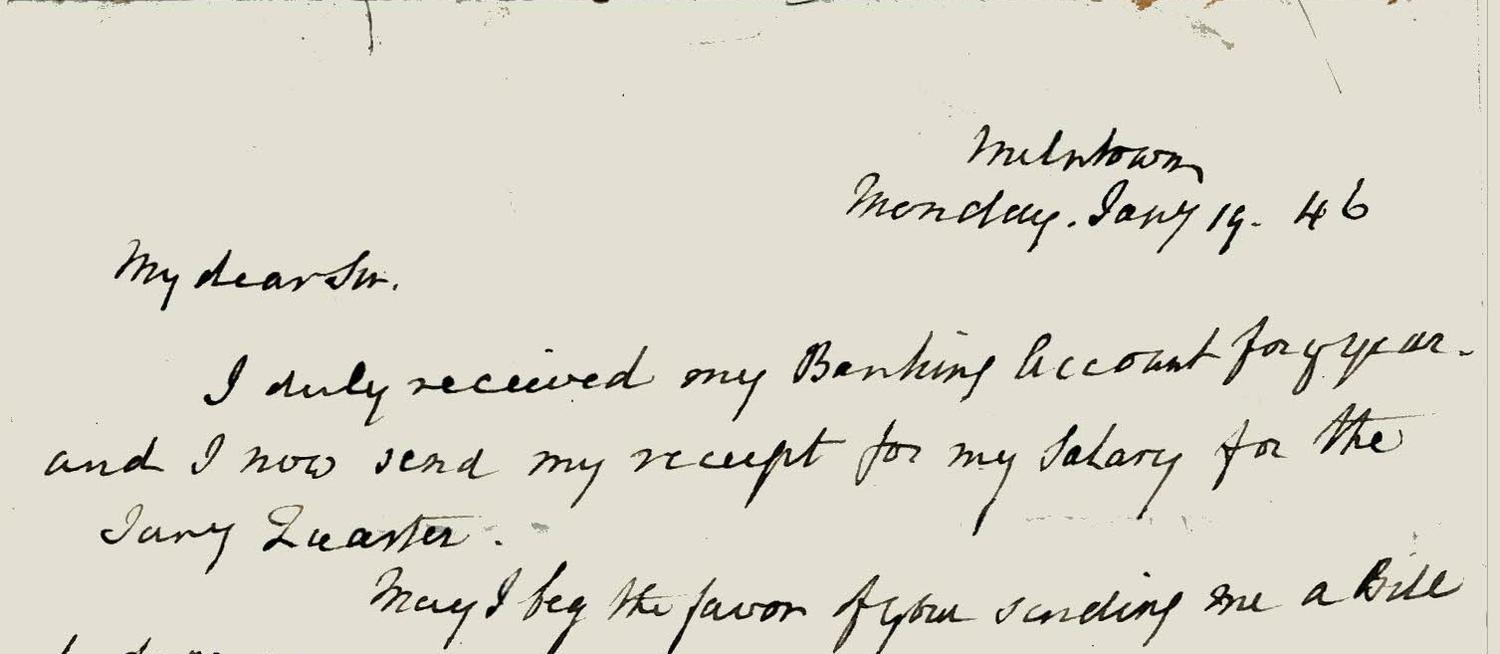 Milntown
Monday. Jany 19. 46
My dear Sir.
I duly received my Banking Account for y year.
and I now send my receipt for my Salary for the
Jany Quarter.
May I beg the favor of your sending me a Bill